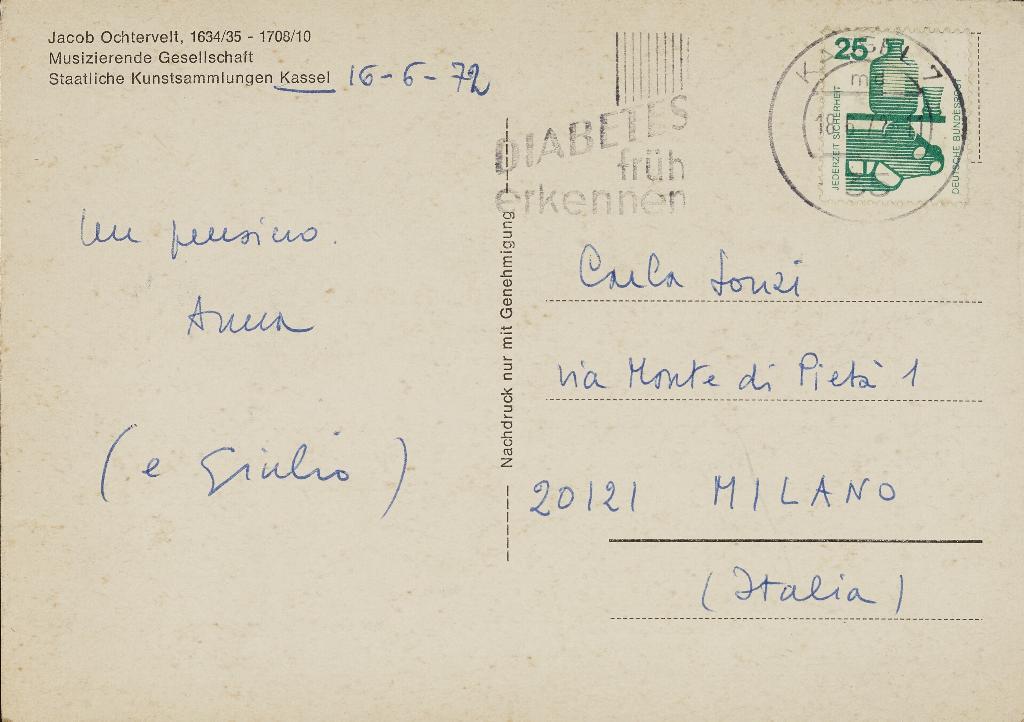 Jacob Ochtervelt, 1634/35 - 1708/10
Musizierende Gesellschaft
Staatliche Kunstsammlungen Kassel 16-6-72
Un pensiero.
Anna
(e Giulio)
Nachdruck nur mit Genehmigung
DIABETES
früh
erkennen
25
JEDERZEIT SICHERHEIT
DEUTSCHE BUNDESPOST
Carla Lonzi
via Monte di Pietà 1
20121 MILANO
(Italia)